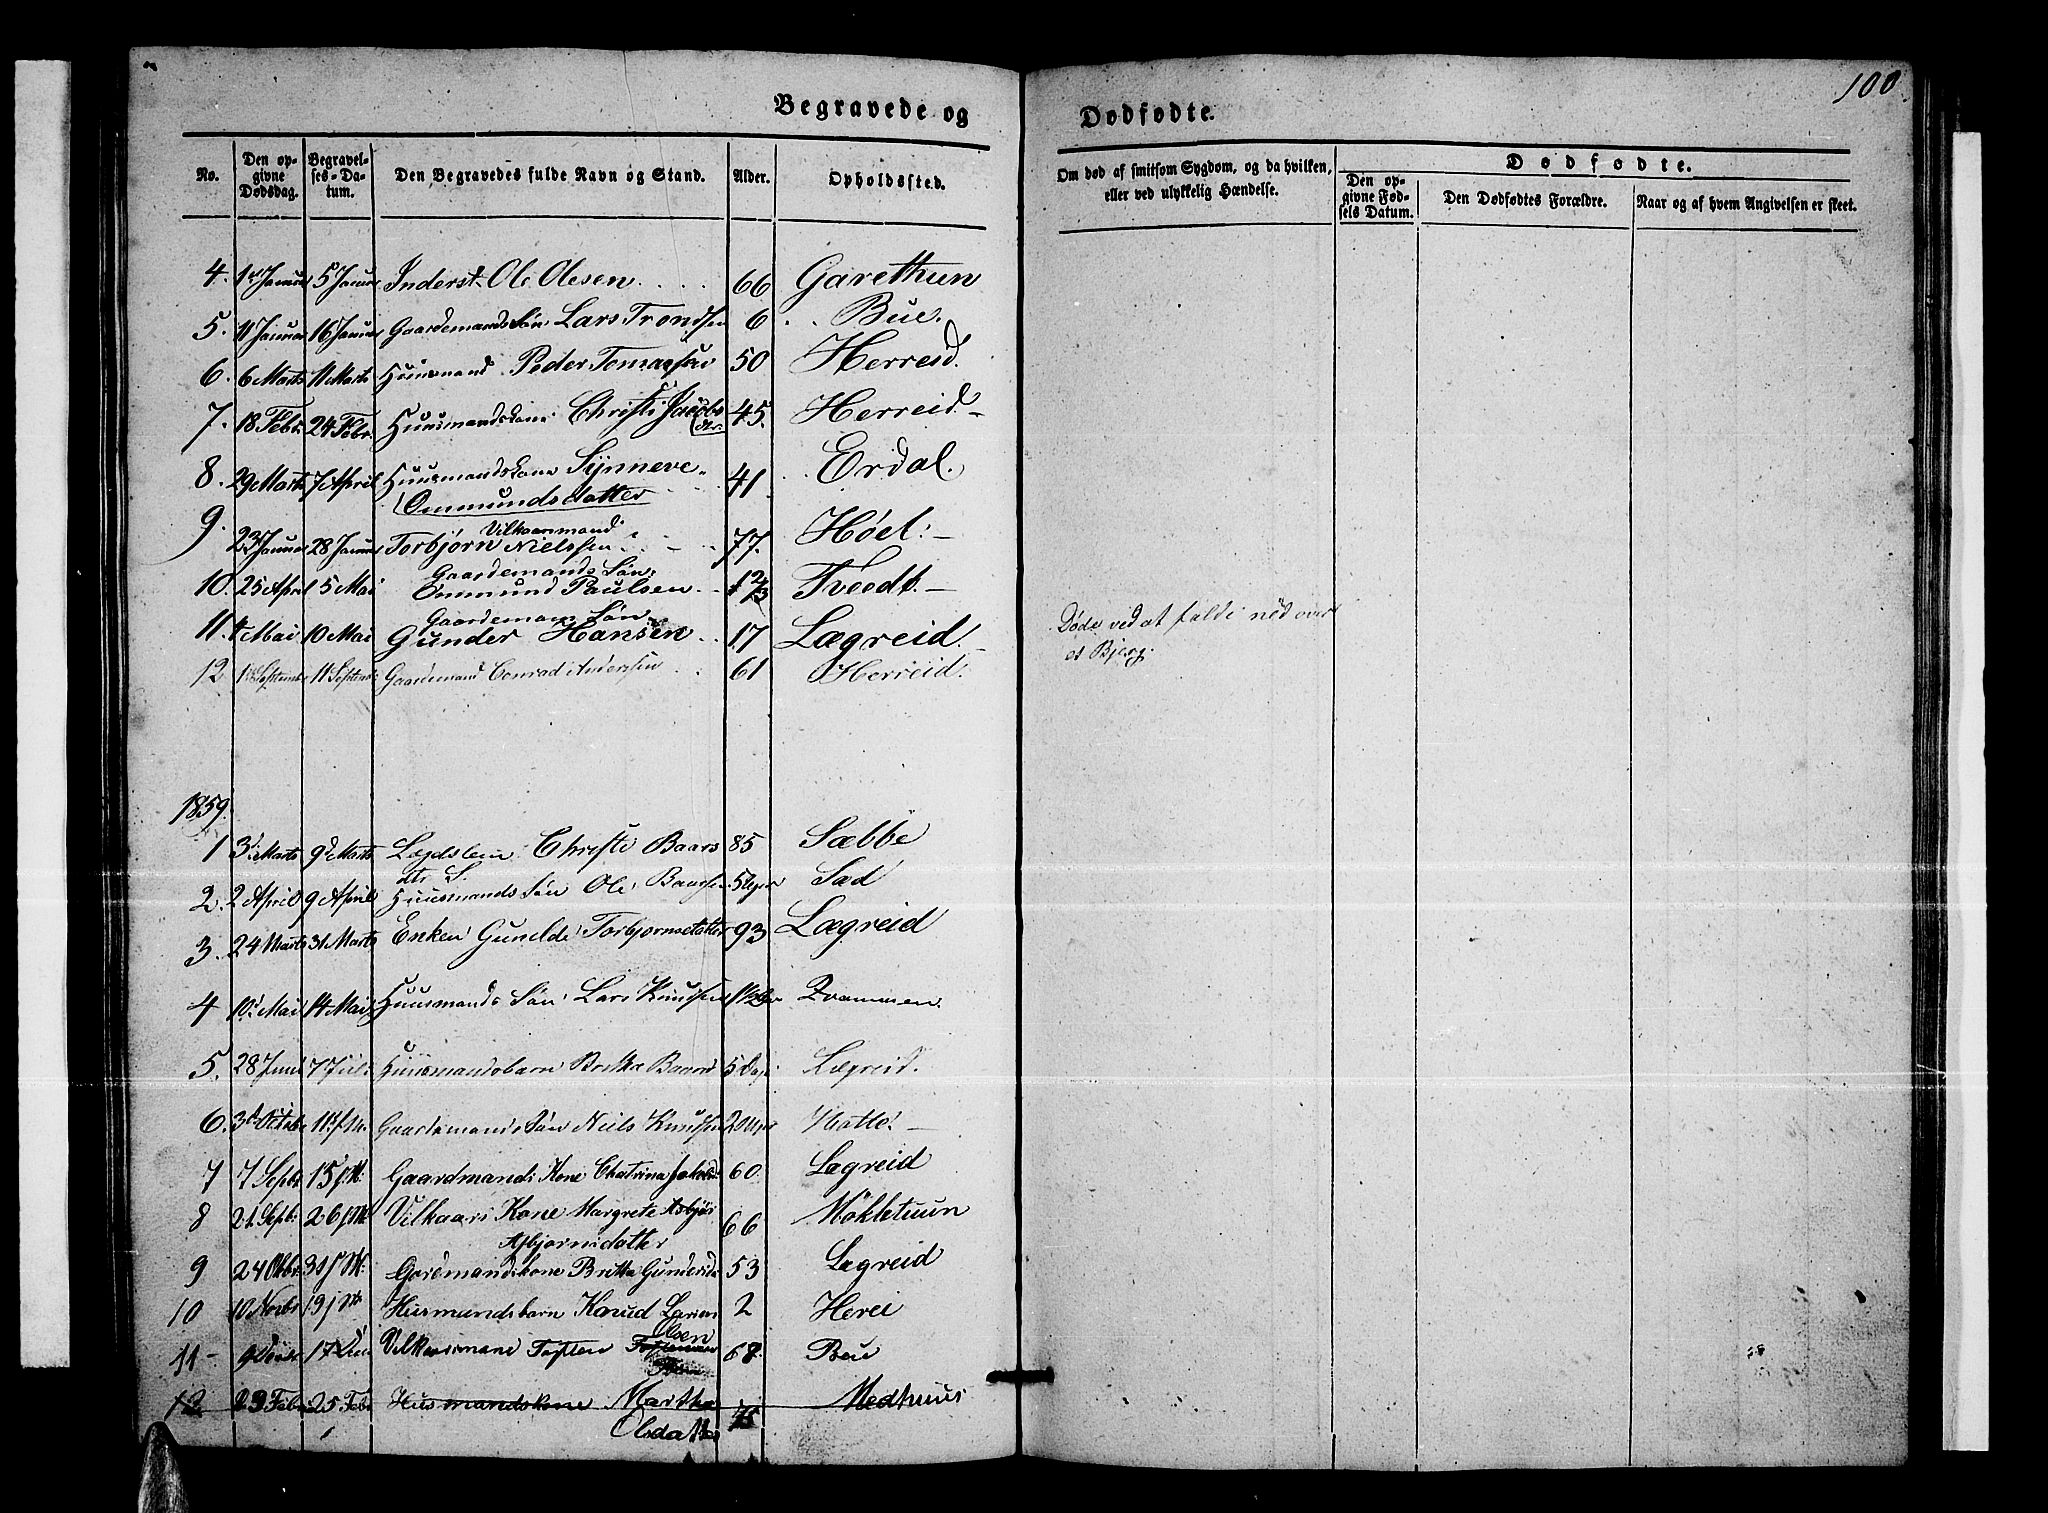 100
Begravede og Dødfødte.
No.
Den opgivne Dødsdag.
Begravelses-Datum.
Den Begravedes fulde Navn og Stand.
Alder.
Opholdssted.
Om død af smitsom Sygdom, og da hvilken, eller ved ulykkelig Hændelse.
Dødfødte.
Den opgivne Fødsels Datum.
Den Dødfødtes Forældre.
Naar og af hvem Angivelsen er skeet.
4. 1 Januar 5 Januar Inderst Ole Olesen 66 Garethun
5. 11 Januar 16 Januar Gaardemands Søn Lars Trondsen 6 Bue.
6. 6 Marts 11 Marts Huusmand Peder Tomassen 50 Herreid
7. 18 Febr. 24 Febr. Huusmandskone Christi Jacobs dtr. 45. Herreid
8. 29 Marts 7 April Huusmandskone Synneve 41 Erdal.
Ommundsdatter
9. 23 Januar 28 Januar Vilkaarmand
Torbjørn Nielssen 77. Høel:
10. 25 April 5 Mai Gaardemands Søn
Ommund Paulsen Tveedt.
11. 4 Mai 10 Mai Gaardemans Søn
Gunder Hansen 17 Lægreid. Døde ved at falde ned over
et Bjerg.
12 11 September Gaardemand Conrad Anderssen 61 Herreid.
1859.
1 3 Marts 9 Marts Lægdslem Christi Baars 85 Sæbbe
dtr
2. 2 April 9 April Huusmands Søn Ole Baarsen 5 Sæd
3. 24 Marts 31 Marts Enken Gunilde Torbjornsdatter 93 Lægreid
4 10 Mai 14 Mai Huusmands Søn Lars Knutsen
5. 28 Juni 7 Juli Huusmandsbarn Britha Baard 5 Dage Lægreid.
6. 3 Octobr Gaardemands Søn Niels Knutsen 2
7 7 Septbr 15 Gaardmands Kone Chatrina 60. Lægreid
8 21 Septbr 26 Vilkaars Kone Margrete Asbjør 66 Møkletuun
Asbjornsdatter
9 24 Okbr. 31 Gardmandskone Britta Gundersd 53 Lægreid
10 10 Novbr 19 Husmandsbarn Knud Larsen 2 Herei
11 9 17 Vilkaarsmand Tosten Olsen 68. Bue
12 23 Febr 25 Febr Husmandskone Martha 75 Medhuus
Olsdatter